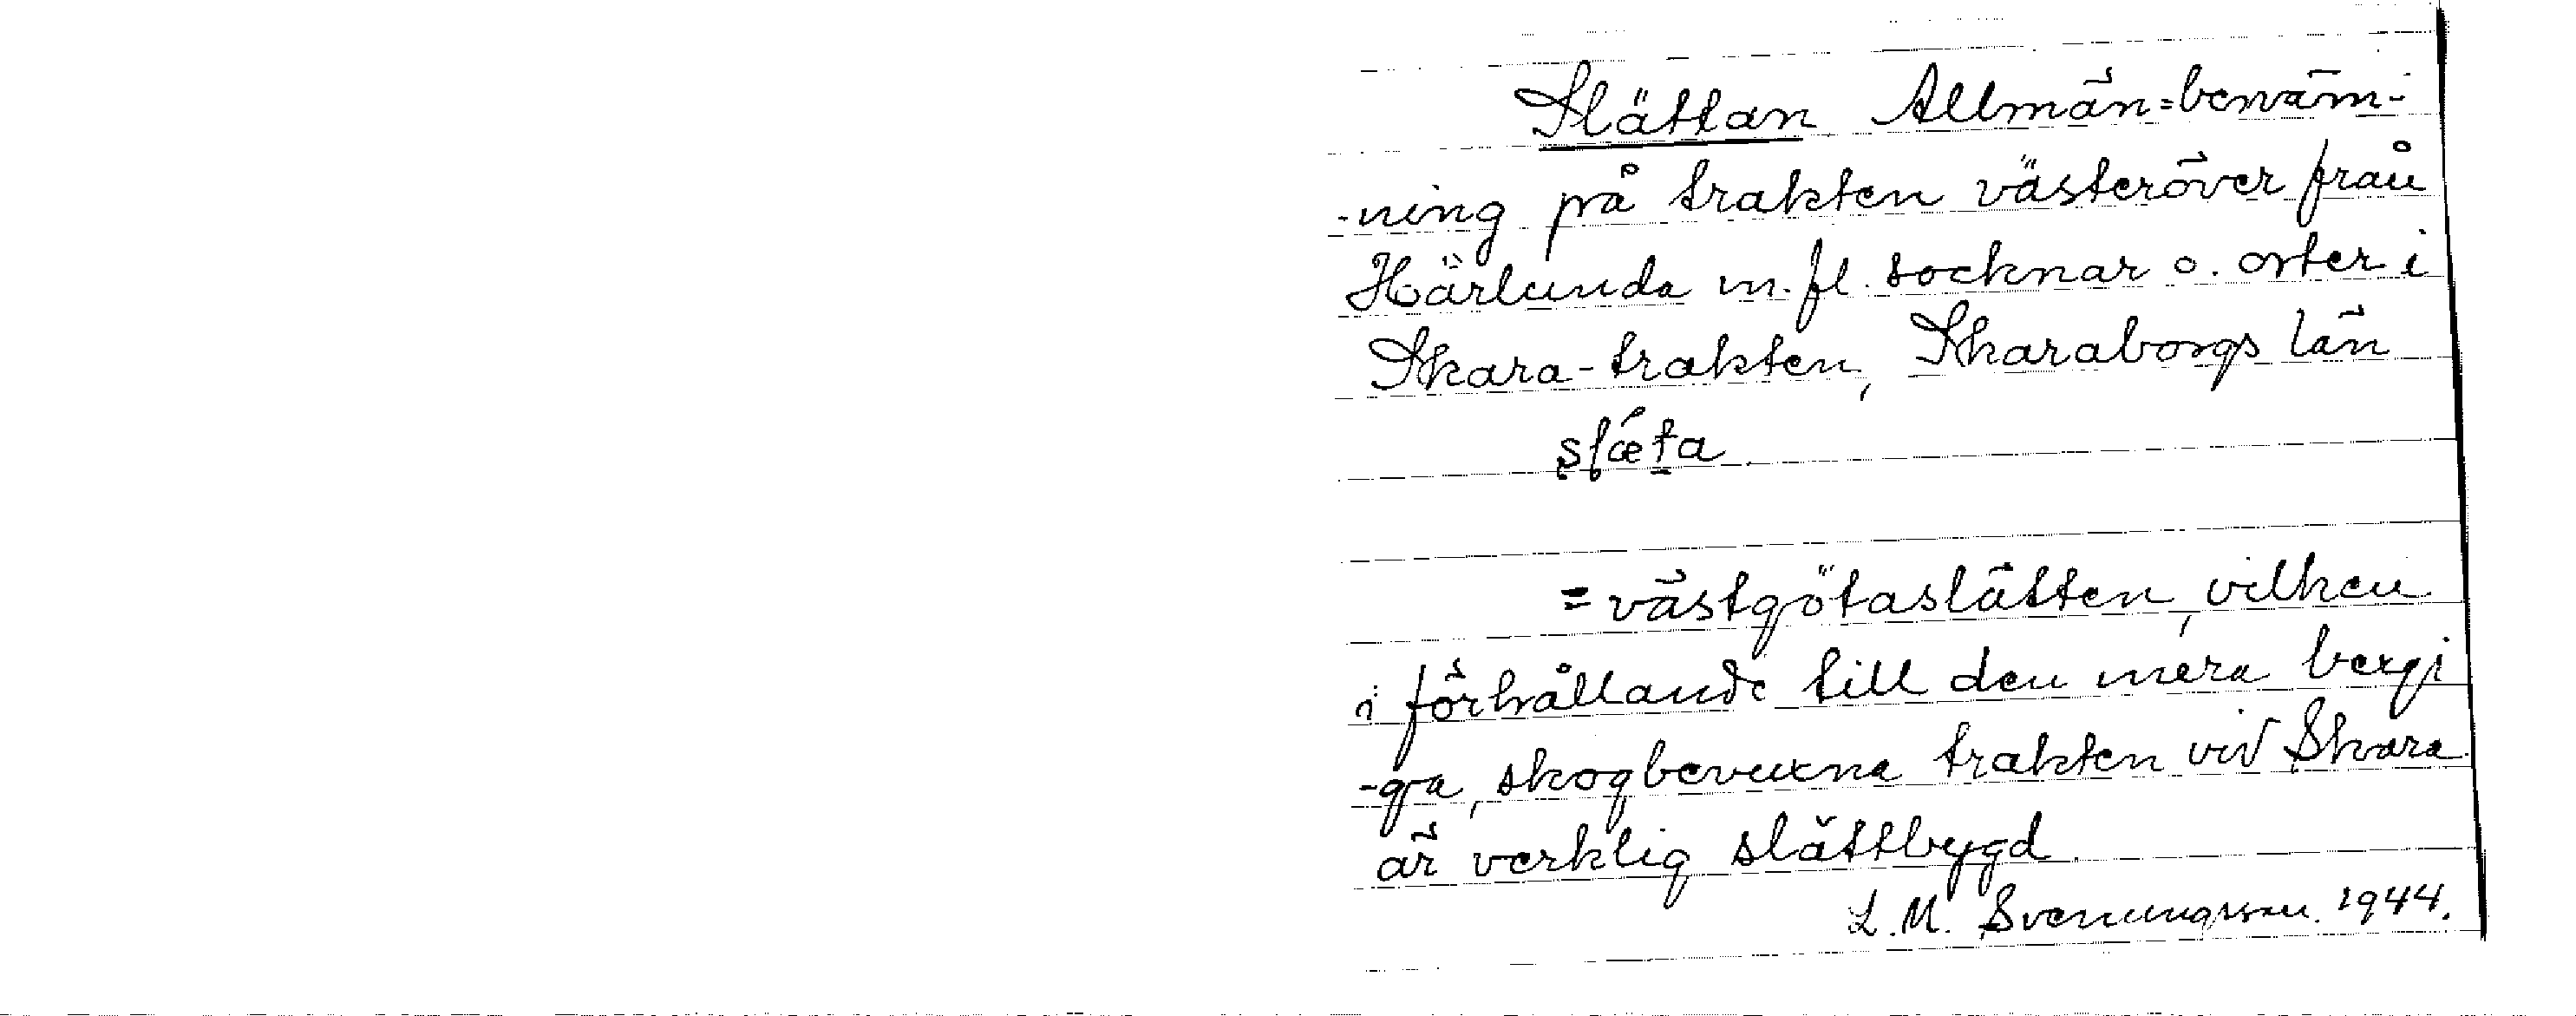 Slättan Allmän=benäm-
-ning på trakten västeröver från
Härlunda m.fl. socknar o. orter i
Skara-trakten, Skaraborgs län
slǽta
= västgötaslätten, vilken
i förhållande till den mera bergi
-ga, skogbevuxna trakten vid Skara
är verklig slättbygd.
L.M. Svenungsson. 1944.